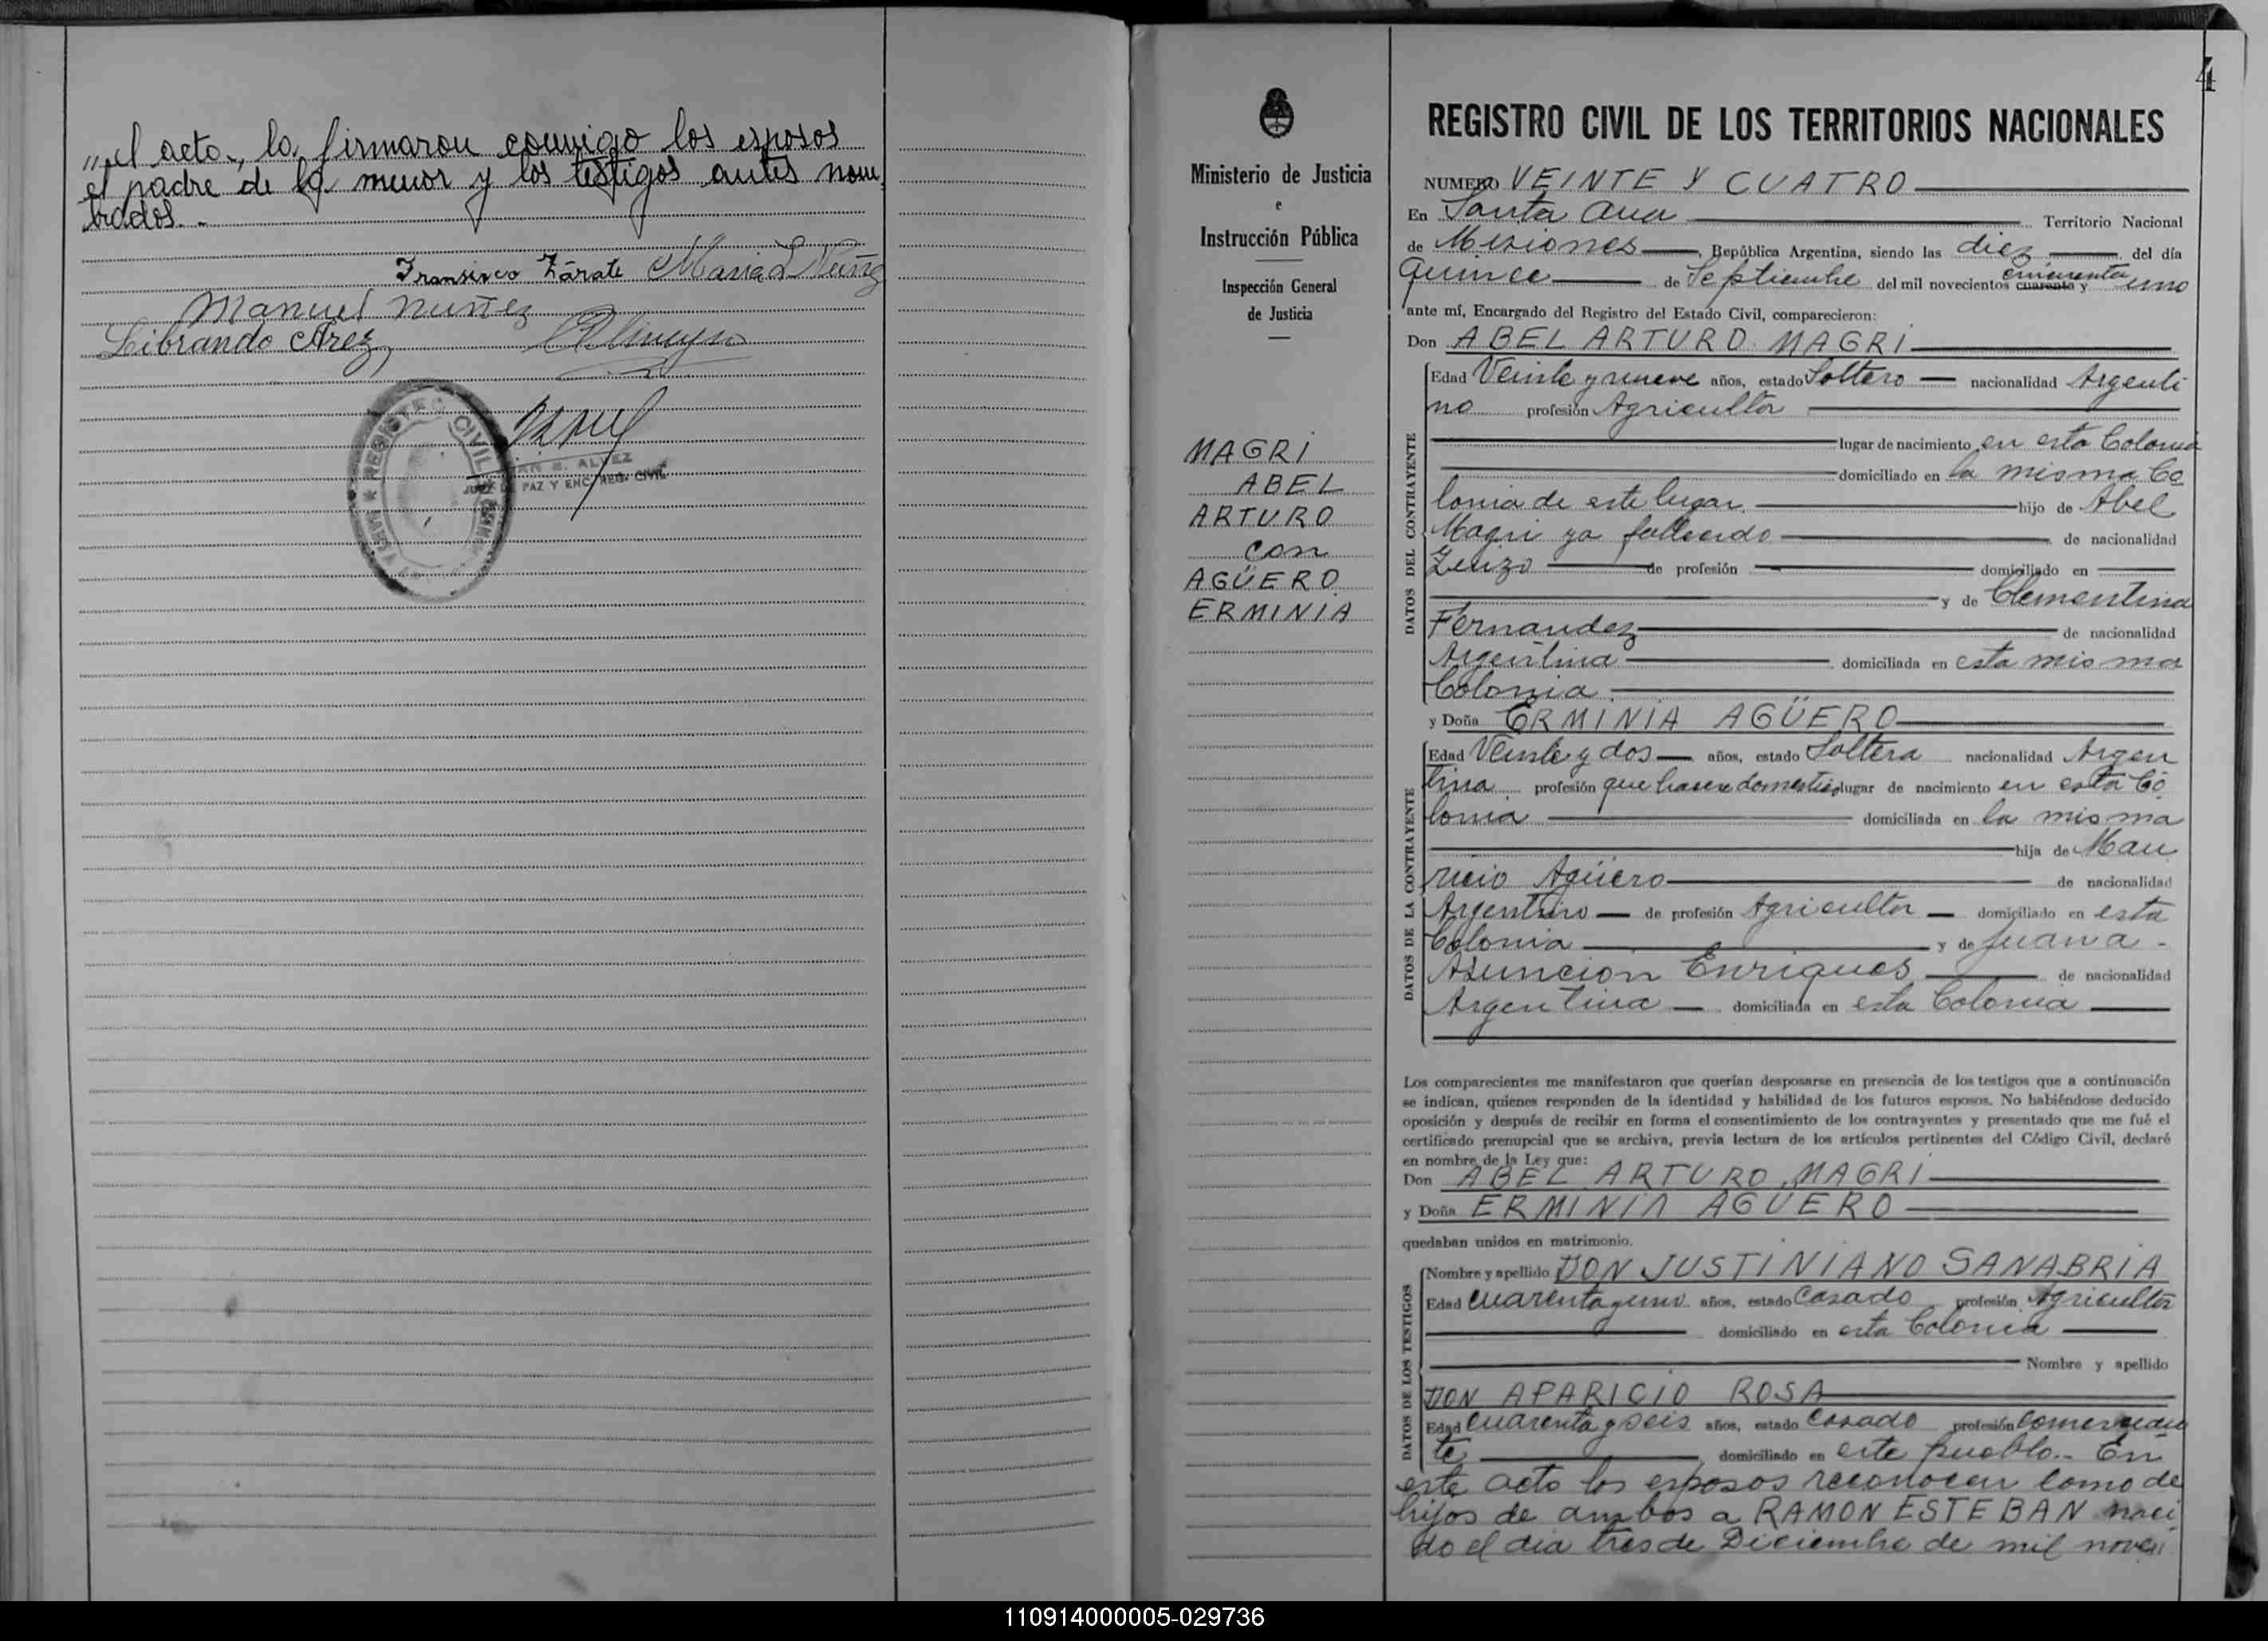 "el acto, lo firmaron conmigo los esposos
el padre de la menor y los testigos antes nom-
brados.-
Fransisco Zárate Maria L Nuñez
Manuel Nuñez
Librando Arez
REGISTRO CIVIL
ALVEZ
JUEZ DE PAZ Y ENC. REG. CIVIL
4
Ministerio de Justicia
e
Instrucción Pública
Inspección General
de Justicia
MAGRI
ABEL
ARTURO
con
AGÜERO
ERMINIA
REGISTRO CIVIL DE LOS TERRITORIOS NACIONALES
NUMERO VEINTE Y CUATRO
En Santa Ana Territorio Nacional
de Misiones, República Argentina, siendo las diez del día
quince de Septiembre del mil novecientos cuarenta y cincuenta uno
ante mí, Encargado del Registro del Estado Civil, comparecieron:
Don ABEL ARTURO MAGRI
DATOS DEL CONTRAYENTE
Edad Veinte y nueve años, estado Soltero nacionalidad Argenti
no profesión Agricultor
lugar de nacimiento en esta Colonia
domiciliado en la misma Co
lonia de este lugar hijo de Abel
Magri ya fallecido de nacionalidad
de profesión domiciliado en
y de Clementina
Fernandez de nacionalidad
Argentina domiciliada en esta misma
Colonia
y Doña ERMINIA AGÜERO
DATOS DE LA CONTRAYENTE
Edad Veinte y dos años, estado Soltera nacionalidad Argen
tina profesión que haceres domesticos lugar de nacimiento en esta Co
lonia domiciliada en la misma
hija de Mau
ricio Agüero de nacionalidad
Argentino de profesión Agricultor domiciliado en esta
Colonia y de Juana -
Asuncion Enriques de nacionalidad
Argentina domiciliada en esta Colonia
Los comparecientes me manifestaron que querían desposarse en presencia de los testigos que a continuación
se indican, quienes responden de la identidad y habilidad de los futuros esposos. No habiéndose deducido
oposición y después de recibir en forma el consentimiento de los contrayentes y presentado que me fué el
certificado prenupcial que se archiva, previa lectura de los artículos pertinentes del Código Civil, declaré
en nombre de la Ley que:
Don ABEL ARTURO MAGRI
y Doña ERMINIA AGUERO
quedaban unidos en matrimonio.
DATOS DE LOS TESTIGOS
Nombre y apellido DON JUSTINIANO SANABRIA
Edad cuarenta y uno años, estado Casado profesión Agricultor
domiciliado en esta Colonia
Nombre y apellido
DON APARICIO ROSA
Edad Cuarenta y seis años, estado Casado profesión Comercian
te domiciliado en este pueblo.- En
este acto los esposos reconocen como de
hijos de ambos a RAMON ESTEBAN naci
do el dia tres de Diciembre de mil nove
110914000005-029736